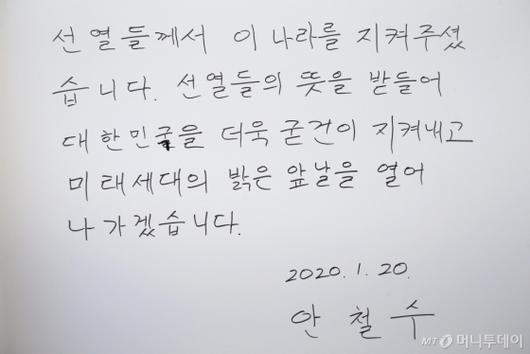 선열들께서 이 나라를 지켜주셨
습니다. 선열들의 뜻을 받들어
대한민국을 더욱 굳건이 지켜내고
미래세대의 밝은 앞날을 열어
나가겠습니다.
2020. 1. 20.
안 철 수
MT 머니투데이